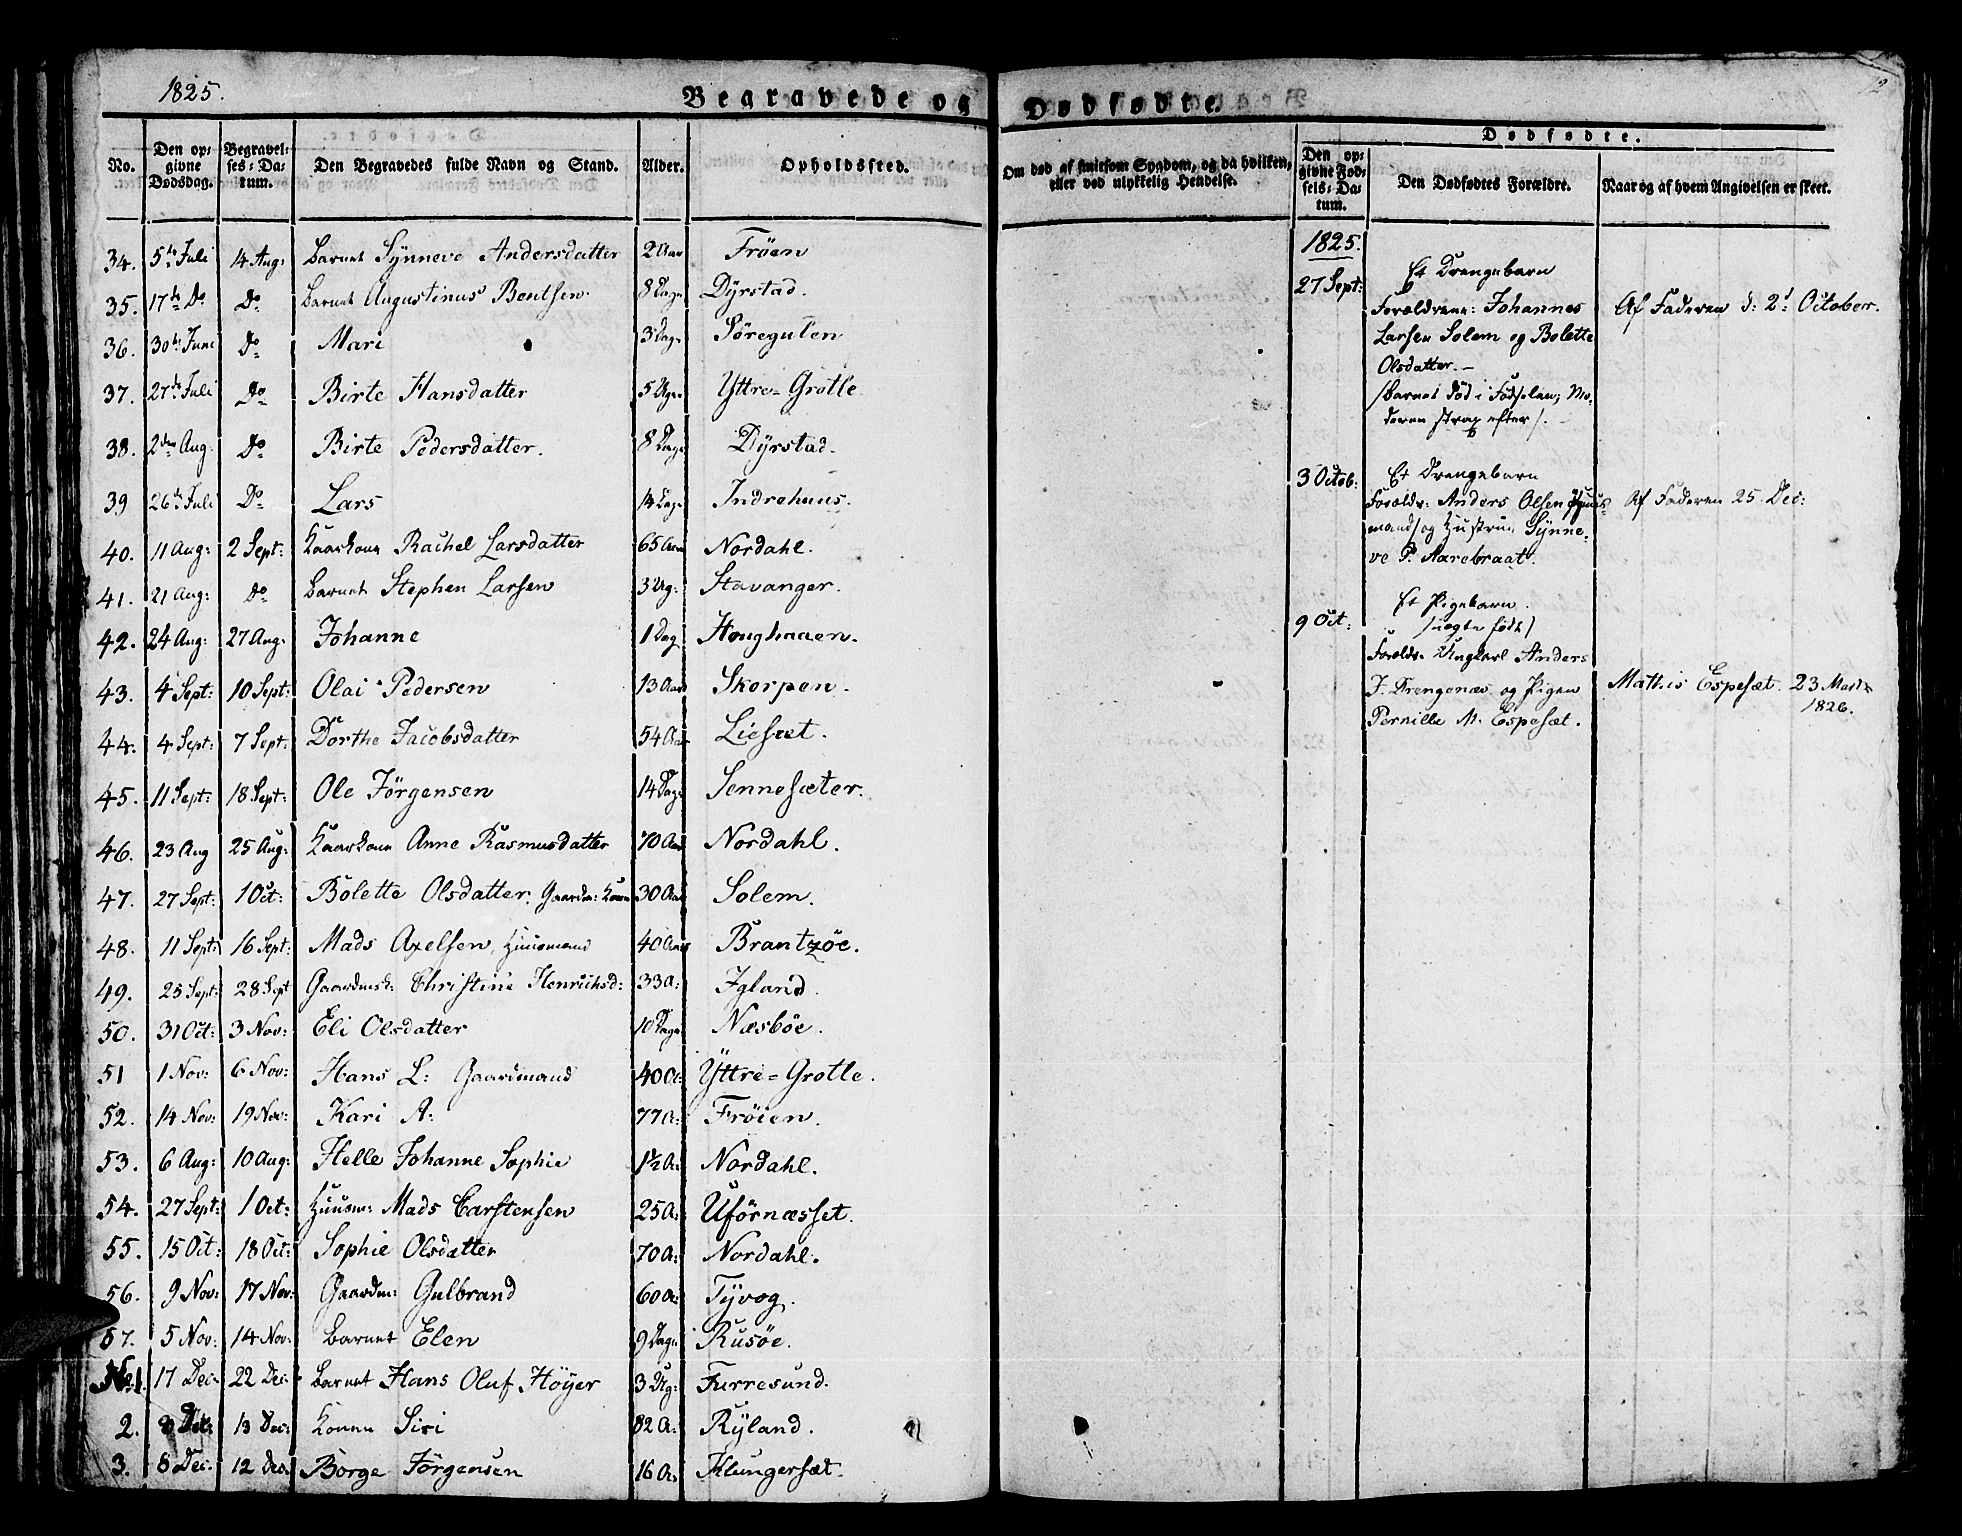 1825.
Begravede og Dødfødte.
12
No. | Den opgivne Dødsdag. | Begravelses-Datum. | Den Begravedes fulde Navn og Stand. | Alder. | Opholdssted.
34. 5te Juli 14 Aug: Barnet Synneve Andersdatter 2 Aar Fröen
35. 17de Do Do Barnet Augustinus Bentsen. 8 Dage Dyrstad.
36. 30te Juni Do Mari 3 Dage Söregulen
37. 27de Juli Do Birte Hansdatter 5 Uger Yttre-Grotle
38. 2den Aug. Do Birte Pedersdatter. 8 Dage Dyrstad.
39 26de Juli Do Lars 14 Dage Indrehuus.
40. 11 Aug: 2 Sept: Kaarkone Rachel Larsdatter 65 Aar Nordahl.
41. 21 Aug: Do Barnet Stephen Larsen 3 Ug: Stavanger.
42. 24 Aug: 27 Aug: Johanne 1 Dag Houghaaen.
43. 4 Sept: 10 Sept: Olai Pedersen 13 Aar Skorpen.
44. 4 Sept: 7 Sept: Dorthe Jacobsdatter 54 Aar Liesæt.
45. 11 Sept: 18 Sept: Ole Jörgensen 14 Dag: Sennesæter.
46. 23 Aug 25 Aug: Kaarkone Anne Rasmusdatter 70 Aar Nordahl.
47. 27 Sept: 1 Oct: Bolette Olsdatter, Gaardm: Kone 30 Aar Solem.
48. 11 Sept: 16 Sept: Mads Axelsen, Huusmand 40 Aar Brantzöe.
49. 25 Sept: 28 Sept Gaardmsk: Christine Henrichsd: 33 A: Igland.
50. 31 Oct: 3 Nov: Eli Olsdatter 10 Dage Næsböe.
51 1 Nov: 6 Nov: Hans L: Gaardmand 40 A: Yttre-Grotle.
52. 14 Nov: 19 Nov: Kari A: 77 A: Fröien.
53. 6 Aug: 10 Aug: Helle Johanne Sophie 1½ A: Nordahl.
54. 27 Sept: 1 Oct: Huusm: Mads Carstensen 25 A: Ufornæsset.
55. 15 Oct: 18 Oct: Sophie Olsdatter 70 A: Nordahl.
56. 9 Nov: 17 Nov: Gaardm: Gulbrand 60 A: Tyvog.
57. 5 Nov: 14 Nov: Barnet Elen 9 Dage Rusöe.
No 1. 17 Dec. 22 Dec. Barnet Hans Oluf Höyer 3 Ug: Furresund.
2. 8 Dec: 13 Dec: Konen Siri 82 A: Ryland.
3. 8 Dec. 12 Dec. Börge Jörgensen 16 A: Klungersæt.
Om død af smitsom Sygdom, og da hvilken, eller ved ulykkelig Hendelse.
Dødfødte.
Den opgivne Fødsels-Datum. | Den Dødfødtes Forældre. | Naar og af hvem Angivelsen er skeet.
1825.
27 Sept: Et Drengebarn
Forældrene: Johannes
Larsen Solem og Bolette
Olsdatter. –
/Barnet död i Födselen, Mo-
deren strax efter/.
Af Faderen d: 2d October.
3 Octob: Et Drengebarn
Forældr: Anders Olsen /Huus-
mand/ og Hustrue Synne-
ve P. Aarebraat.
Af Faderen 25 Dec:
9 Oct: Et Pigebarn.
/uegte födt/
Foreldr. Ungkarl Anders
J. Drengenæs og Pigen
Pernille M. Espesæt.
Mathis Espesæt. 23 Marts
1826.